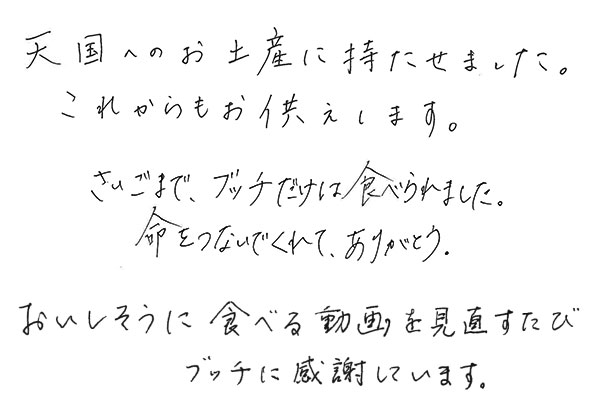 天国へのお土産に持たせました。
これからもお供えします。
さいごまで、ブッチだけは食べられました。
命をつないでくれて、ありがとう。
おいしそうに食べる動画を見直すたび
ブッチに感謝しています。